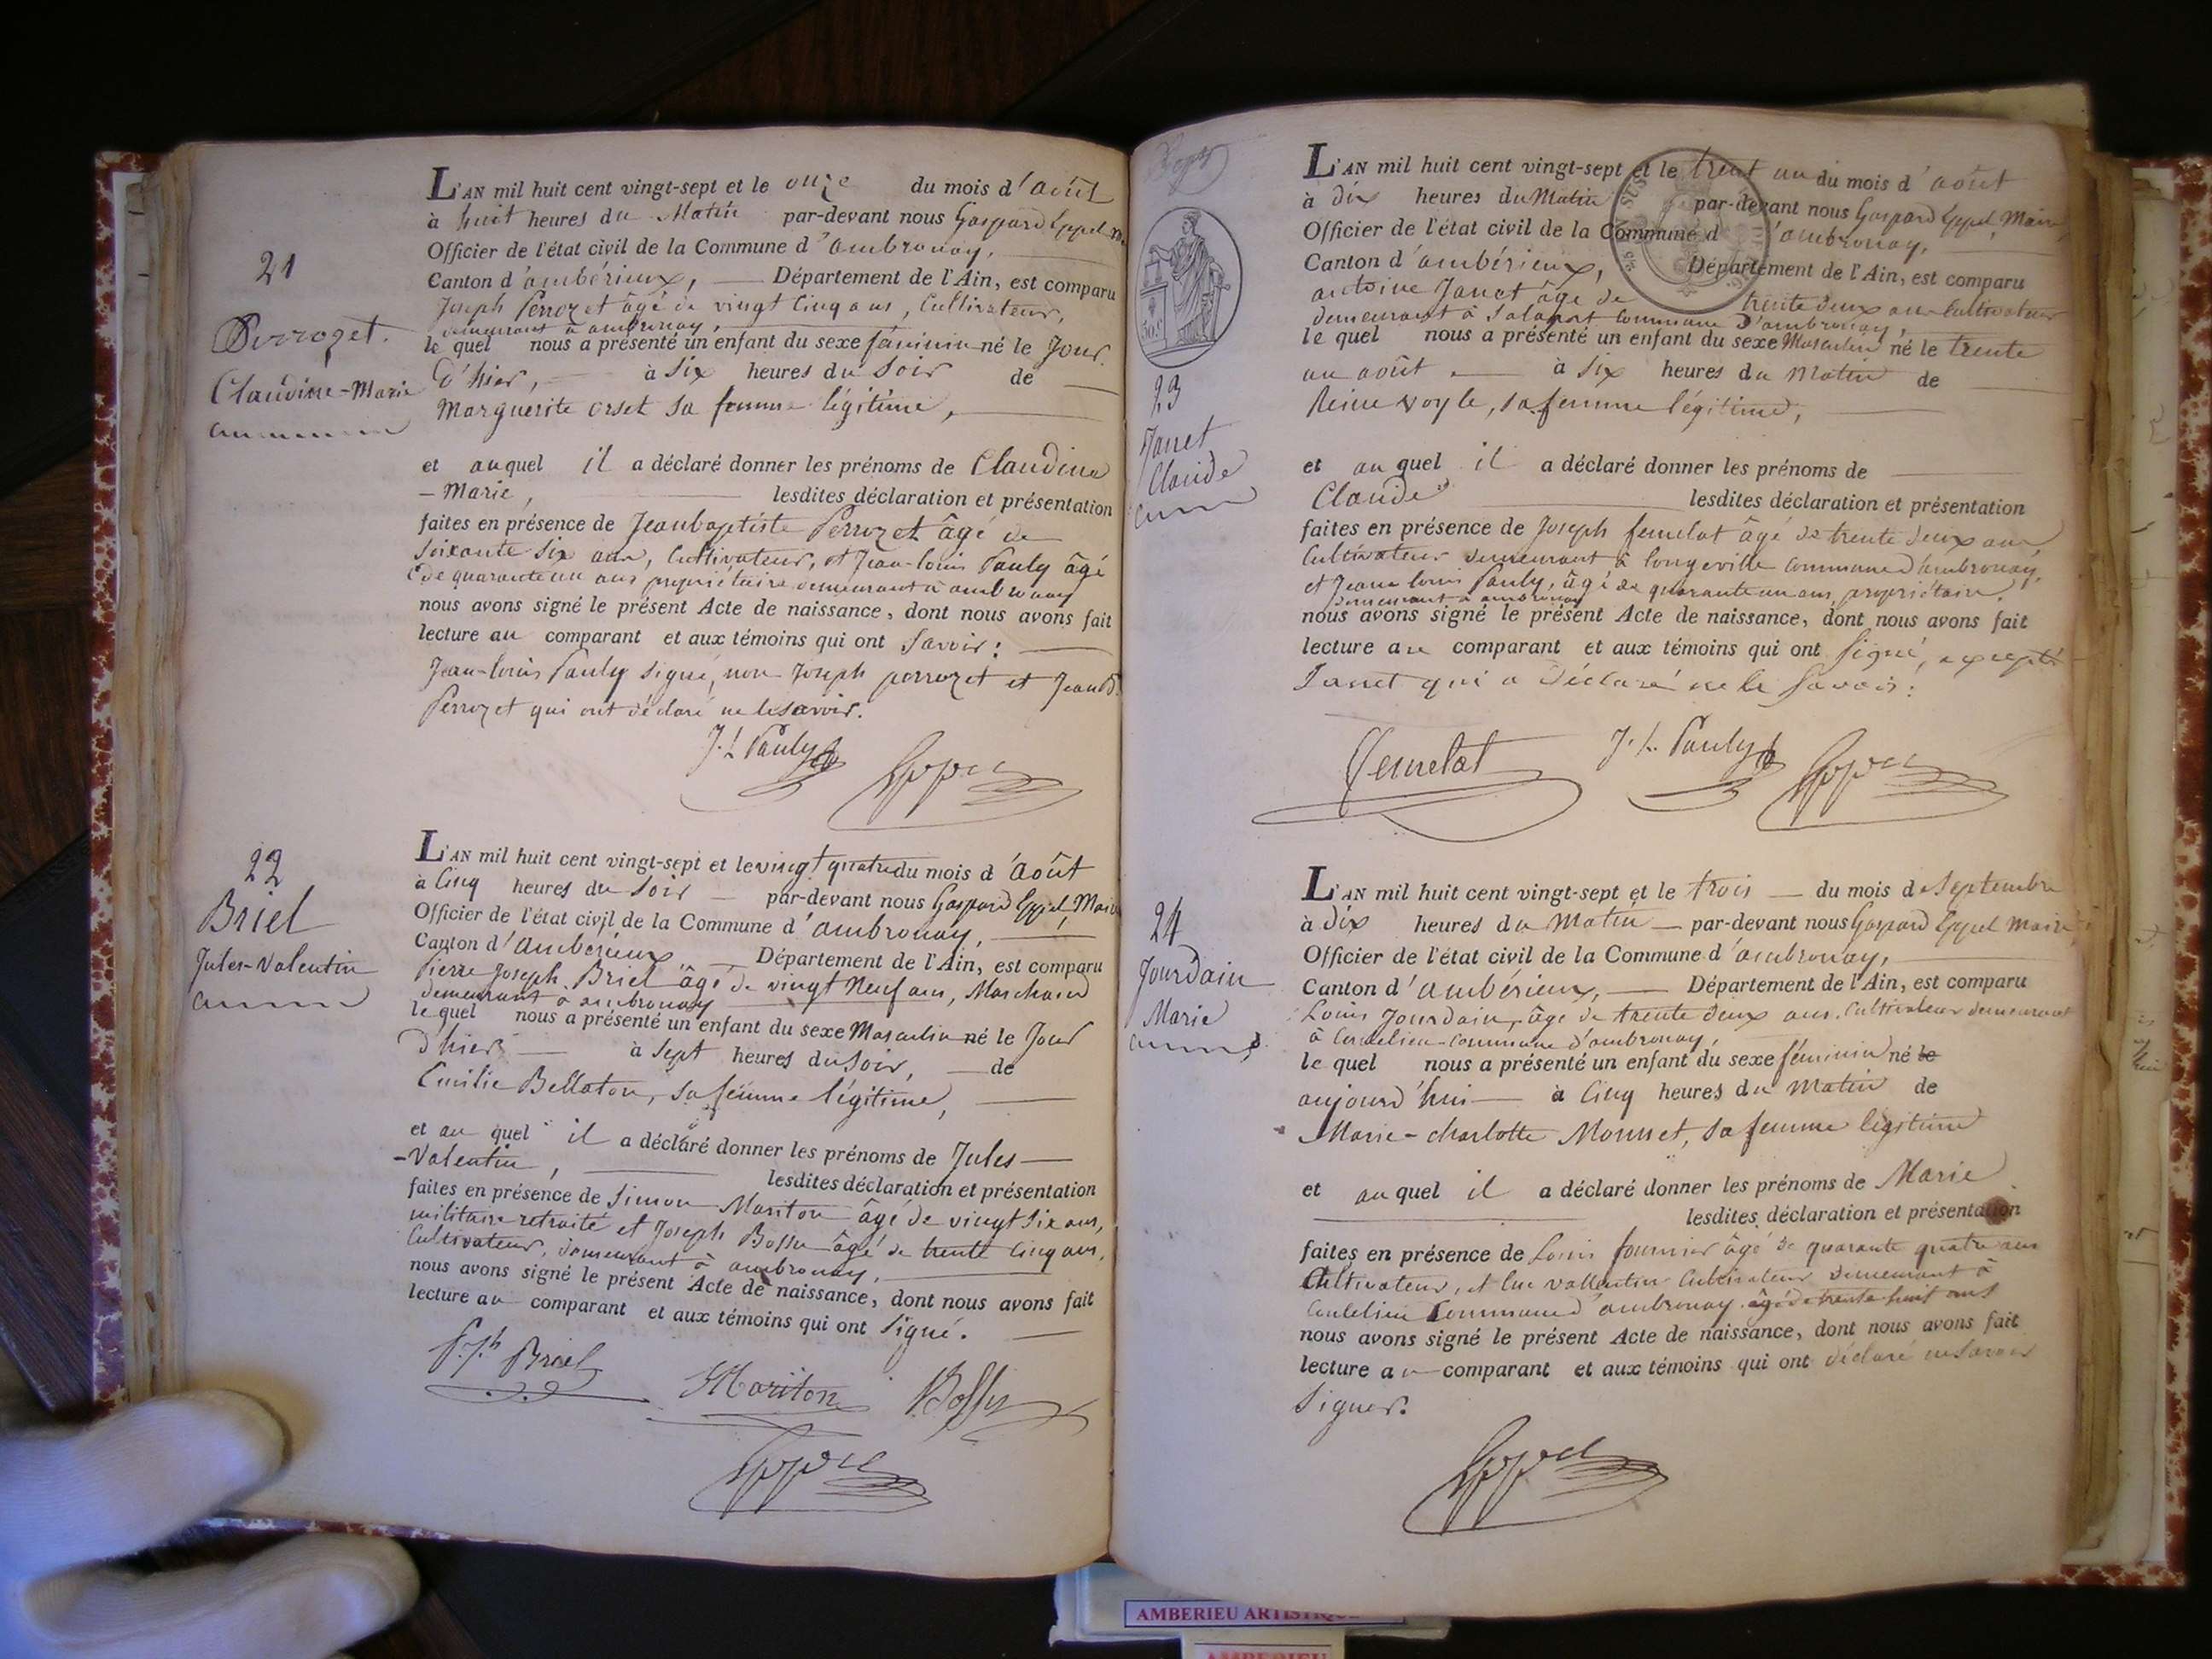 21
Perrozet.
Claudine-Marie
L'AN mil huit cent vingt-sept et le onze du mois d'août
à huit heures du Matin par-devant nous Gaspard Eppel
Officier de l'état civil de la Commune d'ambronay,
Canton d'ambérieux, Département de l'Ain, est comparu
Joseph Perrozet âgé de vingt Cinq ans, Cultivateur,
demeurant à ambronay,
le quel nous a présenté un enfant du sexe féminin né le Jour
d'hier, à Six heures du Soir de
Marguerite orset sa femme légitime,
et auquel il a déclaré donner les prénoms de Claudine
-Marie, lesdites déclaration et présentation
faites en présence de Jeanbaptiste Perrozet âgé de
Soixante Six ans, Cultivateur, et Jean-louis Pauly âgé
de quarante un ans propriétaire demeurant à ambronay
nous avons signé le présent Acte de naissance, dont nous avons fait
lecture au comparant et aux témoins qui ont Savoir :
Jean-louis Pauly signé, non Joseph perrozet et Jean B.
Perrozet qui ont déclaré ne le savoir.
J. L. Pauly Eppel
22
Briel
Jules-Valentin
L'AN mil huit cent vingt-sept et le vingt quatre du mois d'août
à Cinq heures du Soir par-devant nous Gaspard Eppel, Maire
Officier de l'état civil de la Commune d'ambronay,
Canton d'ambérieux Département de l'Ain, est comparu
Pierre Joseph Briel âgé de vingt Neuf ans, Marchand
demeurant à ambronay
le quel nous a présenté un enfant du sexe Masculin né le Jour
d'hier à Sept heures du Soir, de
Emilie Bellaton, sa femme légitime,
et au quel il a déclaré donner les prénoms de Jules
-Valentin, lesdites déclaration et présentation
faites en présence de Simon Mariton âgé de vingt Six ans,
militaire retraité et Joseph Bossu âgé de trente Cinq ans,
Cultivateur, demeurant à ambronay,
nous avons signé le présent Acte de naissance, dont nous avons fait
lecture au comparant et aux témoins qui ont Signé.
P. Jh Briel Mariton Bossu
Eppel
L'AN mil huit cent vingt-sept et le trent un du mois d'août
à dix heures du Matin par-devant nous Gaspard Eppel, Maire,
Officier de l'état civil de la Commune d'ambronay,
Canton d'ambérieux, Département de l'Ain, est comparu
antoine Janet âgé de trente deux ans Cultivateur
demeurant à Salaport Commune d'ambronay,
le quel nous a présenté un enfant du sexe Masculin né le trente
un août à Six heures du Matin de
Reine voyle, sa femme légitime,
23
Janet
Claude
et au quel il a déclaré donner les prénoms de
Claude lesdites déclaration et présentation
faites en présence de Joseph femelat âgé de trente deux ans
Cultivateur demeurant à longeville Commune d'ambronay,
et Jean louis Pauly, âgé de quarante un ans, propriétaire,
demeurant à ambronay
nous avons signé le présent Acte de naissance, dont nous avons fait
lecture au comparant et aux témoins qui ont Signé, excepté
Janet qui a Déclaré ne le Savoir :
femelat J. L. Pauly Eppel
24
Jourdain
Marie
L'AN mil huit cent vingt-sept et le trois du mois de Septembre
à dix heures du Matin par-devant nous Gaspard Eppel Maire,
Officier de l'état civil de la Commune d'ambronay,
Canton d'ambérieux, Département de l'Ain, est comparu
Louis Jourdain, âgé de trente deux ans. Cultivateur demeurant
à Coutelieu Commune d'ambronay,
le quel nous a présenté un enfant du sexe féminin né le
aujourd'hui à Cinq heures du Matin de
Marie-charlotte Monnet, sa femme légitime
et auquel il a déclaré donner les prénoms de Marie
lesdites déclaration et présentation
faites en présence de Louis fournier âgé de quarante quatre ans
Cultivateur, et luc vallentin Cultivateur demeurant à
Coutelieu Commune d'ambronay. âgé de trente huit ans
nous avons signé le présent Acte de naissance, dont nous avons fait
lecture au comparant et aux témoins qui ont déclaré ne Savoir
Signer.
Eppel
AMBERIEU
AMBERIEU